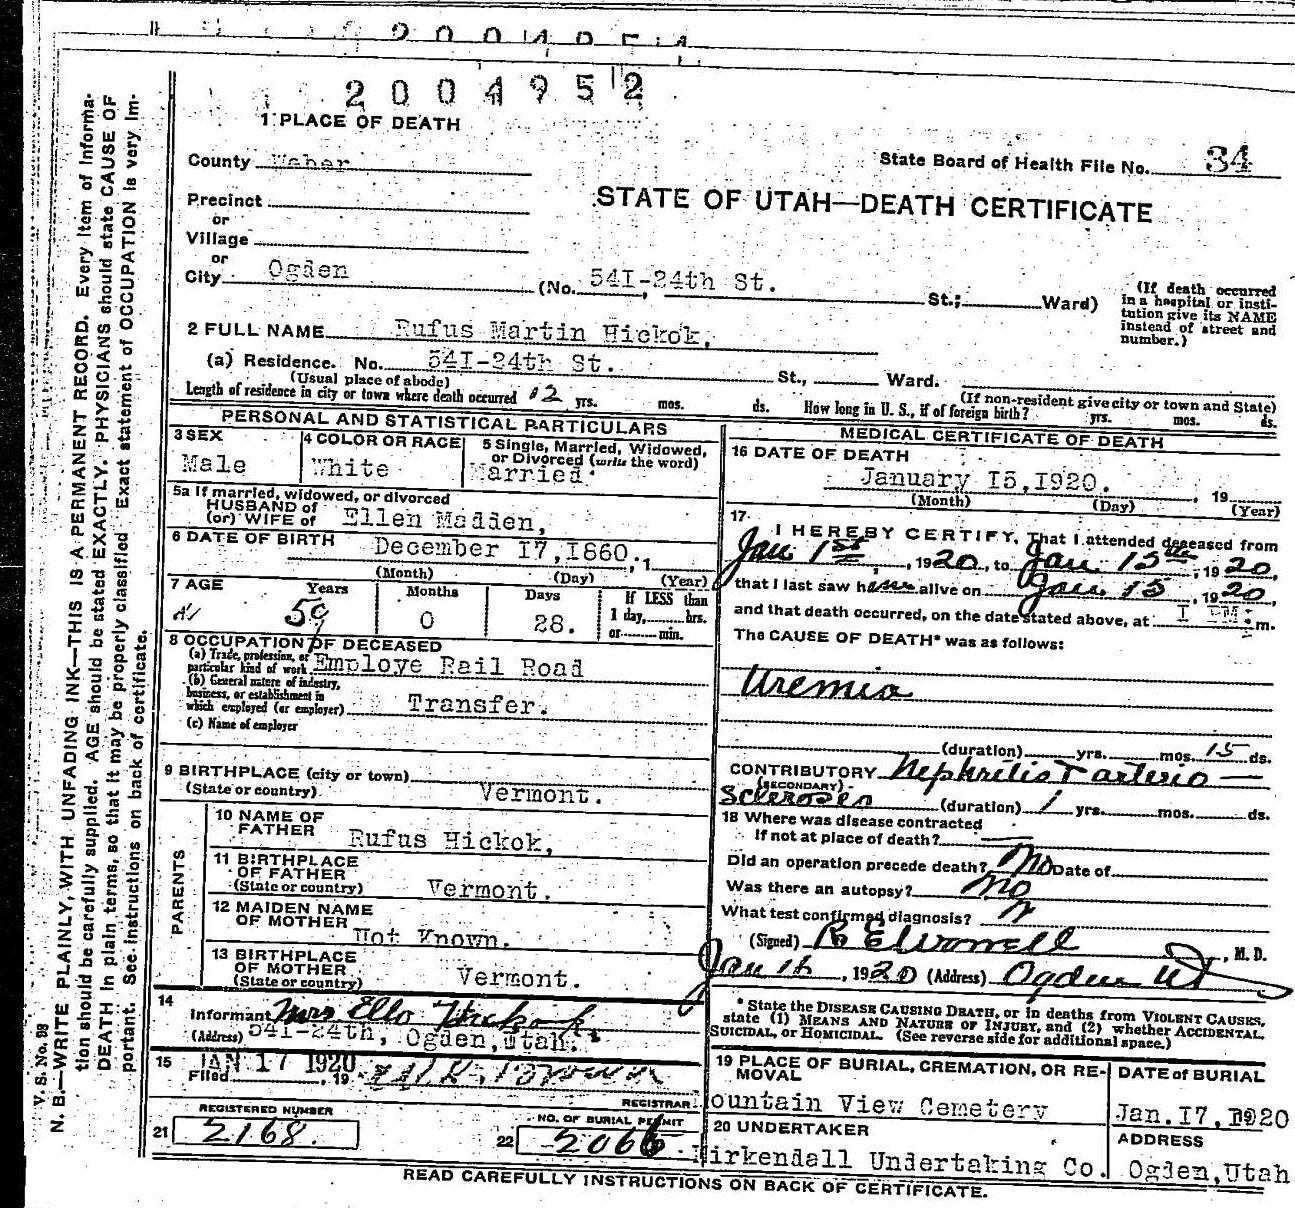 2004952
1 PLACE OF DEATH
County Weber
State Board of Health File No. 34
STATE OF UTAH—DEATH CERTIFICATE
Precinct
or
Village
or
City Ogden (No. 54I-24th St. St.; Ward)
(If death occurred in a hospital or institution give its NAME instead of street and number.)
2 FULL NAME Rufus Martin Hickok,
(a) Residence. No. 54I-24th St. St., Ward.
(Usual place of abode) (If non-resident give city or town and State)
Length of residence in city or town where death occurred 12 yrs. mos. ds. How long in U. S., if of foreign birth? yrs. mos. ds.
PERSONAL AND STATISTICAL PARTICULARS
3 SEX
Male
4 COLOR OR RACE
White
5 Single, Married, Widowed,
or Divorced (write the word)
Married
5a If married, widowed, or divorced
HUSBAND of
(or) WIFE of Ellen Madden,
6 DATE OF BIRTH December I7,I860., 1
(Month) (Day) (Year)
7 AGE Years Months Days If LESS than
59 0 28. 1 day, hrs.
or min.
8 OCCUPATION OF DECEASED
(a) Trade, profession, or
particular kind of work Employe Rail Road
(b) General nature of industry,
business, or establishment in
which employed (or employer) Transfer.
(c) Name of employer
9 BIRTHPLACE (city or town)
(State or country) Vermont.
PARENTS
10 NAME OF
FATHER Rufus Hickok,
11 BIRTHPLACE
OF FATHER
(State or country) Vermont.
12 MAIDEN NAME
OF MOTHER Not Known.
13 BIRTHPLACE
OF MOTHER
(State or country) Vermont.
14
Informant Mrs Ella Hickok
(Address) 54I-24th, Ogden,Utah.
15 JAN 17 1920
Filed , 19
REGISTRAR
REGISTERED NUMBER
21 2168.
NO. OF BURIAL PERMIT
22 2066
MEDICAL CERTIFICATE OF DEATH
16 DATE OF DEATH
January I5,I920. , 19
(Month) (Day) (Year)
17 I HEREBY CERTIFY, That I attended deceased from
Jan 1st, 1920, to Jan 15th, 1920,
that I last saw him alive on Jan 15, 1920,
and that death occurred, on the date stated above, at I PM. m.
The CAUSE OF DEATH* was as follows:
Uremia
(duration) yrs. mos. 15 ds.
CONTRIBUTORY Nephritis & arterio—
(SECONDARY)
Sclerosis (duration) 1 yrs. mos. ds.
18 Where was disease contracted
If not at place of death?
Did an operation precede death? No Date of
Was there an autopsy? no
What test confirmed diagnosis?
(Signed) , M. D.
Jan 16, 1920 (Address) Ogden Ut
* State the DISEASE CAUSING DEATH, or in deaths from VIOLENT CAUSES,
state (1) MEANS AND NATURE OF INJURY, and (2) whether ACCIDENTAL,
SUICIDAL, or HOMICIDAL. (See reverse side for additional space.)
19 PLACE OF BURIAL, CREMATION, OR RE-
MOVAL
ountain View Cemetery
DATE of BURIAL
Jan.I7,I920
20 UNDERTAKER
Kirkendall Undertaking Co.
ADDRESS
Ogden,Utah
READ CAREFULLY INSTRUCTIONS ON BACK OF CERTIFICATE.
V. S. No. 98
N. B.—WRITE PLAINLY, WITH UNFADING INK—THIS IS A PERMANENT RECORD. Every item of informa-
tion should be carefully supplied. AGE should be stated EXACTLY. PHYSICIANS should state CAUSE OF
DEATH in plain terms, so that it may be properly classified. Exact statement of OCCUPATION is very im-
portant. See instructions on back of certificate.